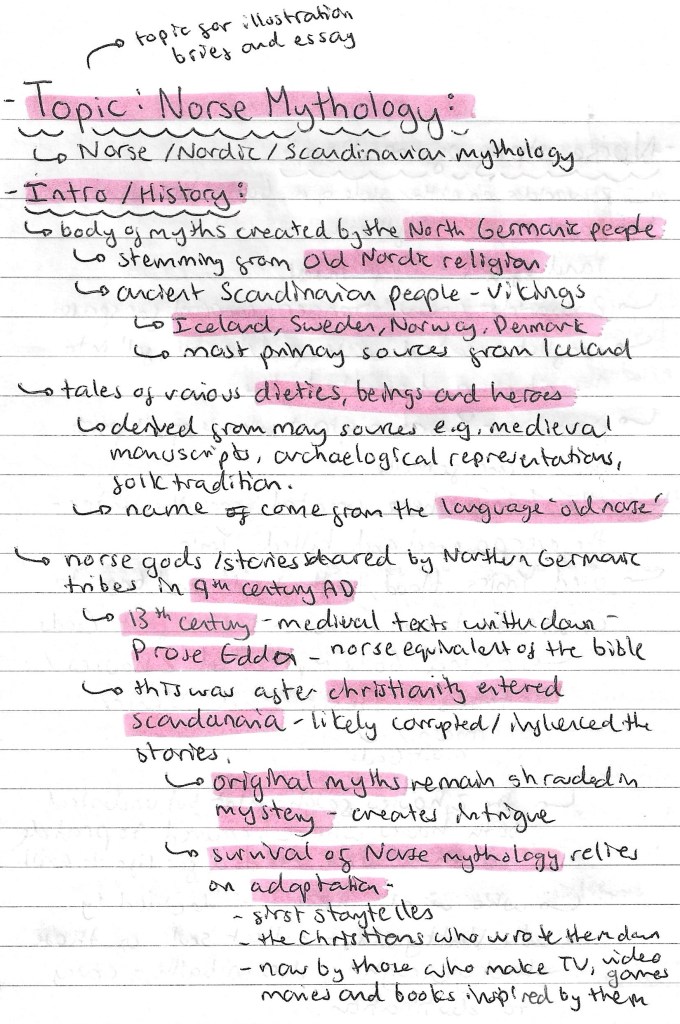 topic for illustration
brief and essay
- Topic: Norse Mythology:
↳ Norse / Nordic / Scandinavian mythology
- Intro / History:
↳ body of myths created by the North Germanic people
↳ stemming from Old Nordic religion
↳ ancient Scandinavian people - Vikings
↳ Iceland, Sweden, Norway, Denmark
↳ most primary sources from Iceland
↳ tales of various dieties, beings and heroes
↳ derived from may sources e.g. medieval
manuscripts, archaelogical representations,
folk tradition.
↳ name of come from the language 'old norse'
↳ norse gods / stories shared by Northern Germanic
tribes in 9th century AD
↳ 13th century - medieval texts written down -
Prose Edda - norse equivalent of the bible
↳ this was after christianity entered
scandanavia - likely corrupted / influenced the
stories.
↳ original myths remain shrouded in
mystery - creates intrigue
↳ survival of Norse mythology relies
on adaptation -
- first storytelles
- the Christians who wrote them down
- now by those who make TV, video games
movies and books inspired by them